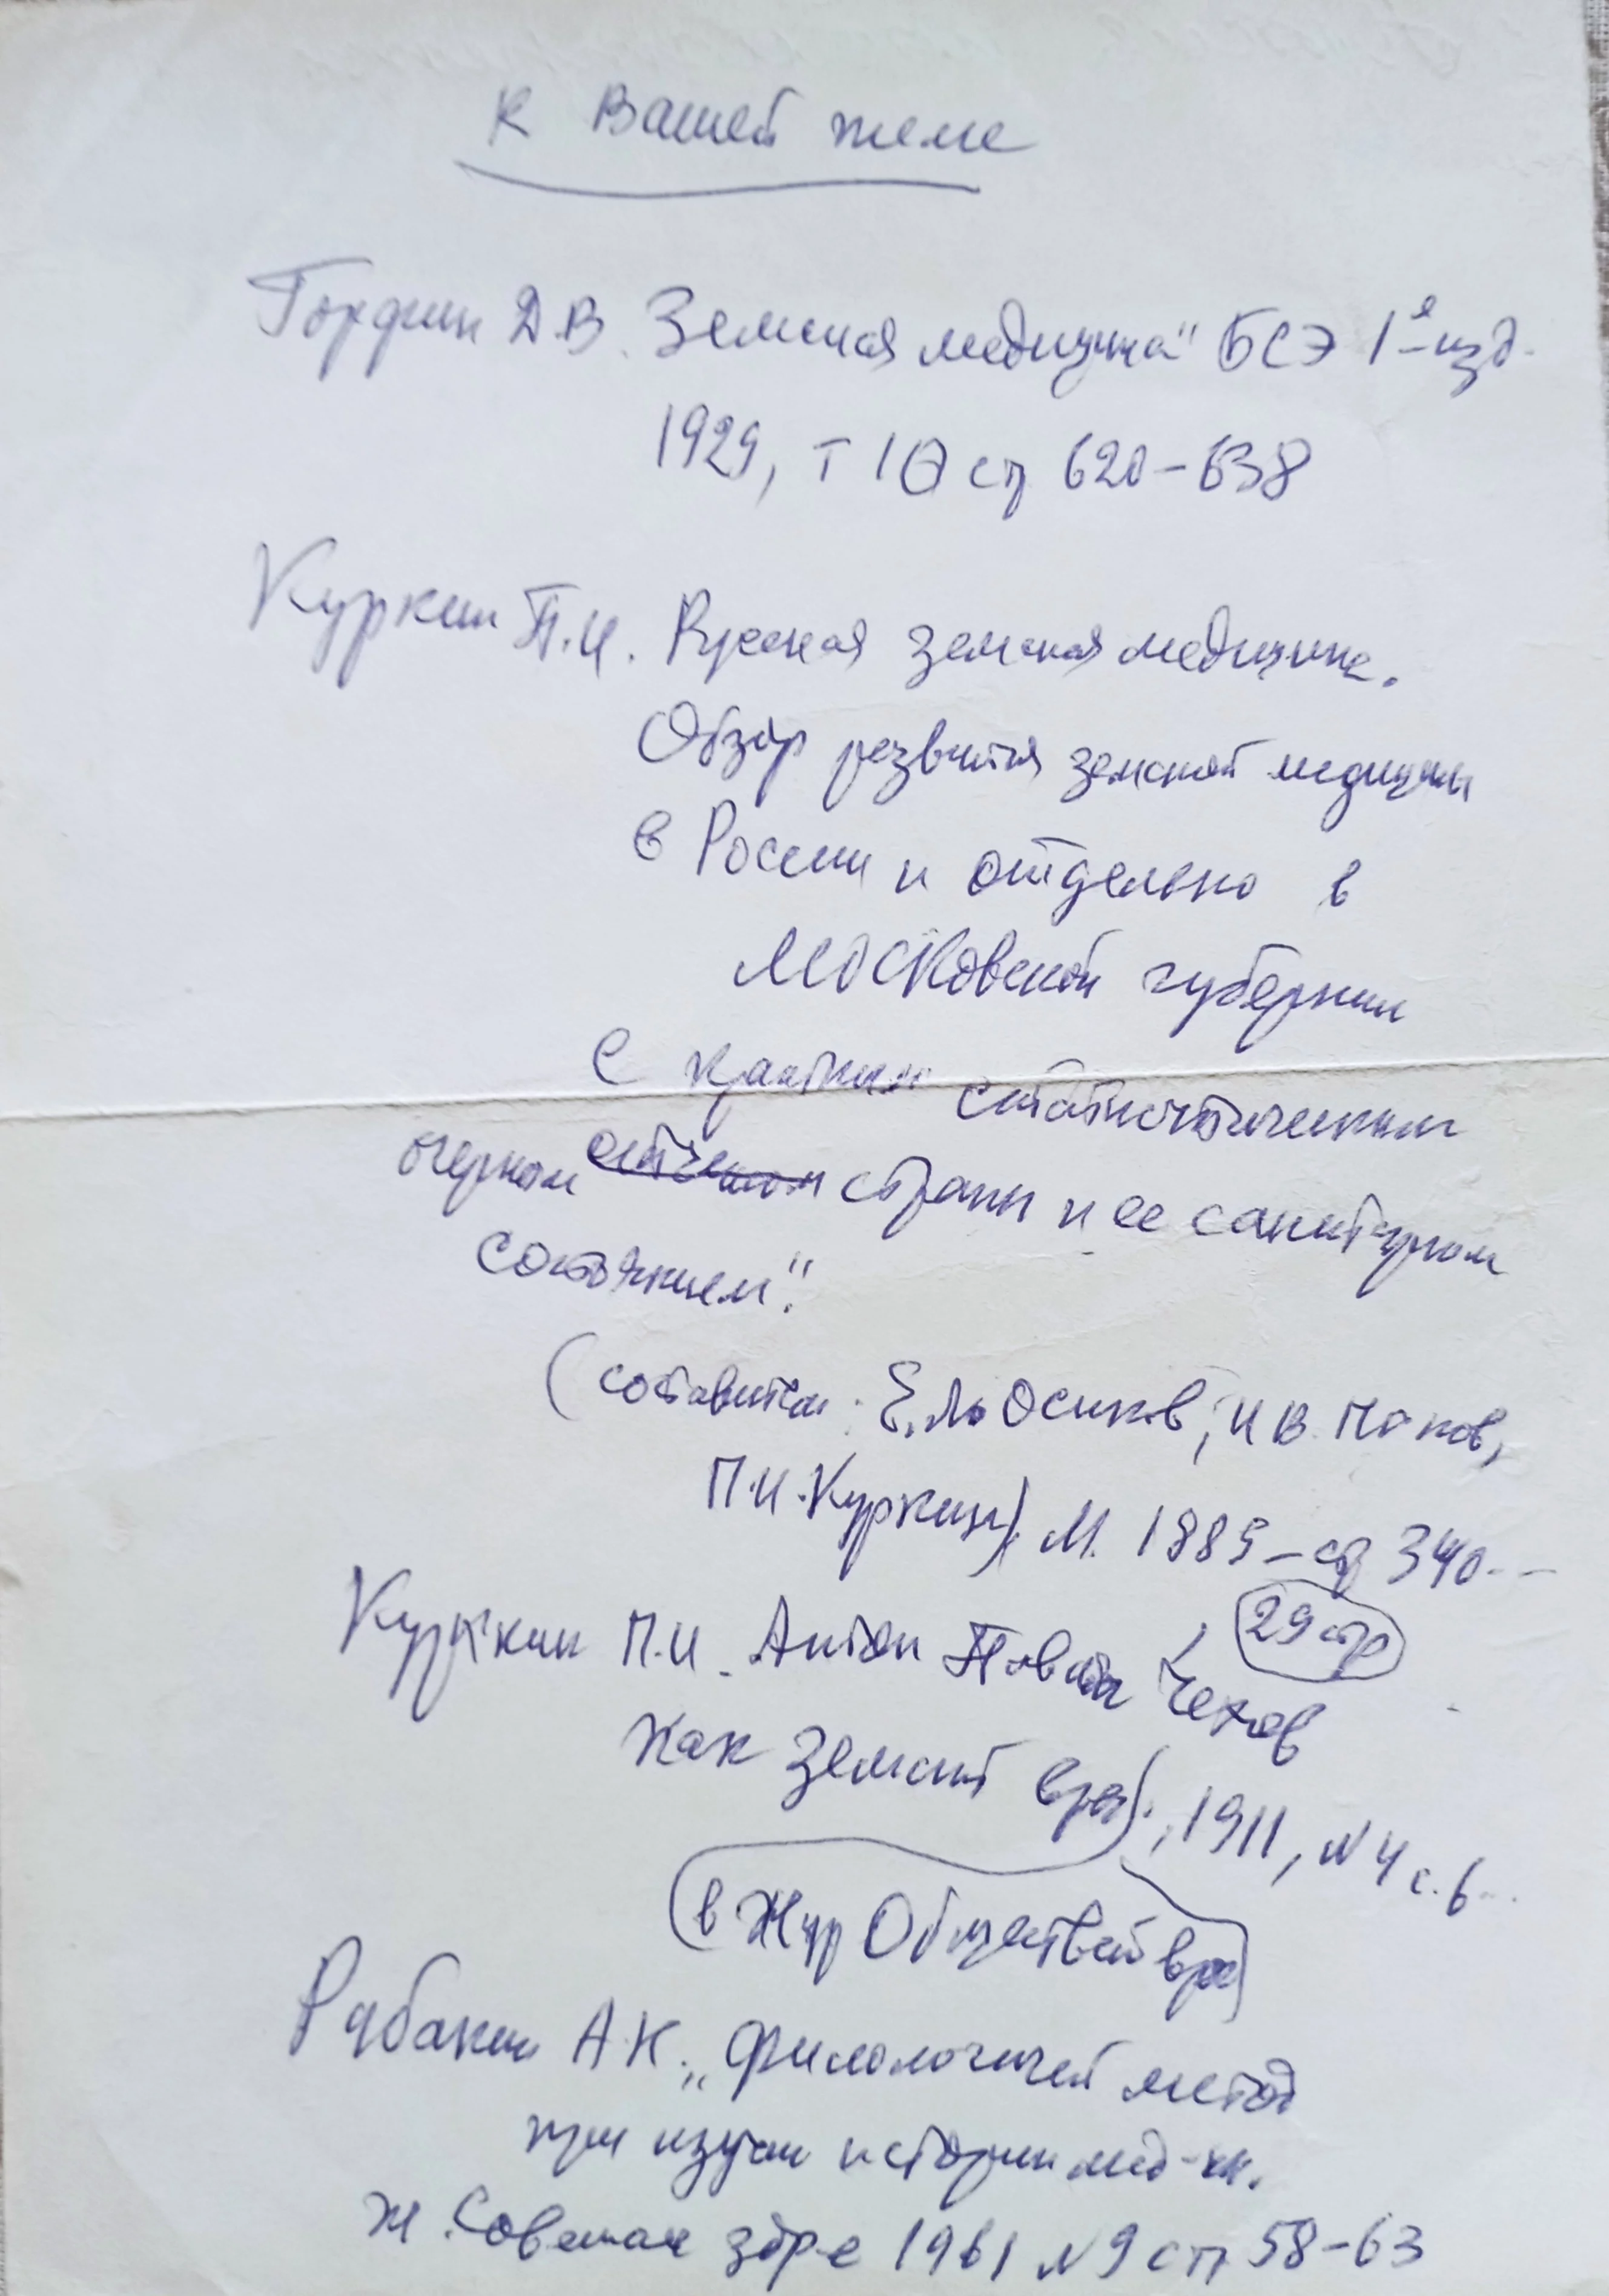 К Вашей теме
Горфин Д.В. Земская медицина" БСЭ 1-е изд.
1929, т 10 ст 620-638
Куркин П.И. Русская земская медицина.
Обзор развития земской медицины
в России и отдельно в
Московской губернии
с кратким статистическим
очерком страны и ее санитарном
состоянием".
(составители: Осипов, И В. Попов,
П.И.Куркин). М. 1889 - ср 340--
29 стр
Куркин П.И. Антон Павлович Чехов
как земский врач., 1911, N 4 с. 6...
(в Жур Обществен врач)
Рябакин А.К. „Филологичей метод
при изучен истории мед-ны.
ж. Советское здр-е 1961 N 9 ст 58-63